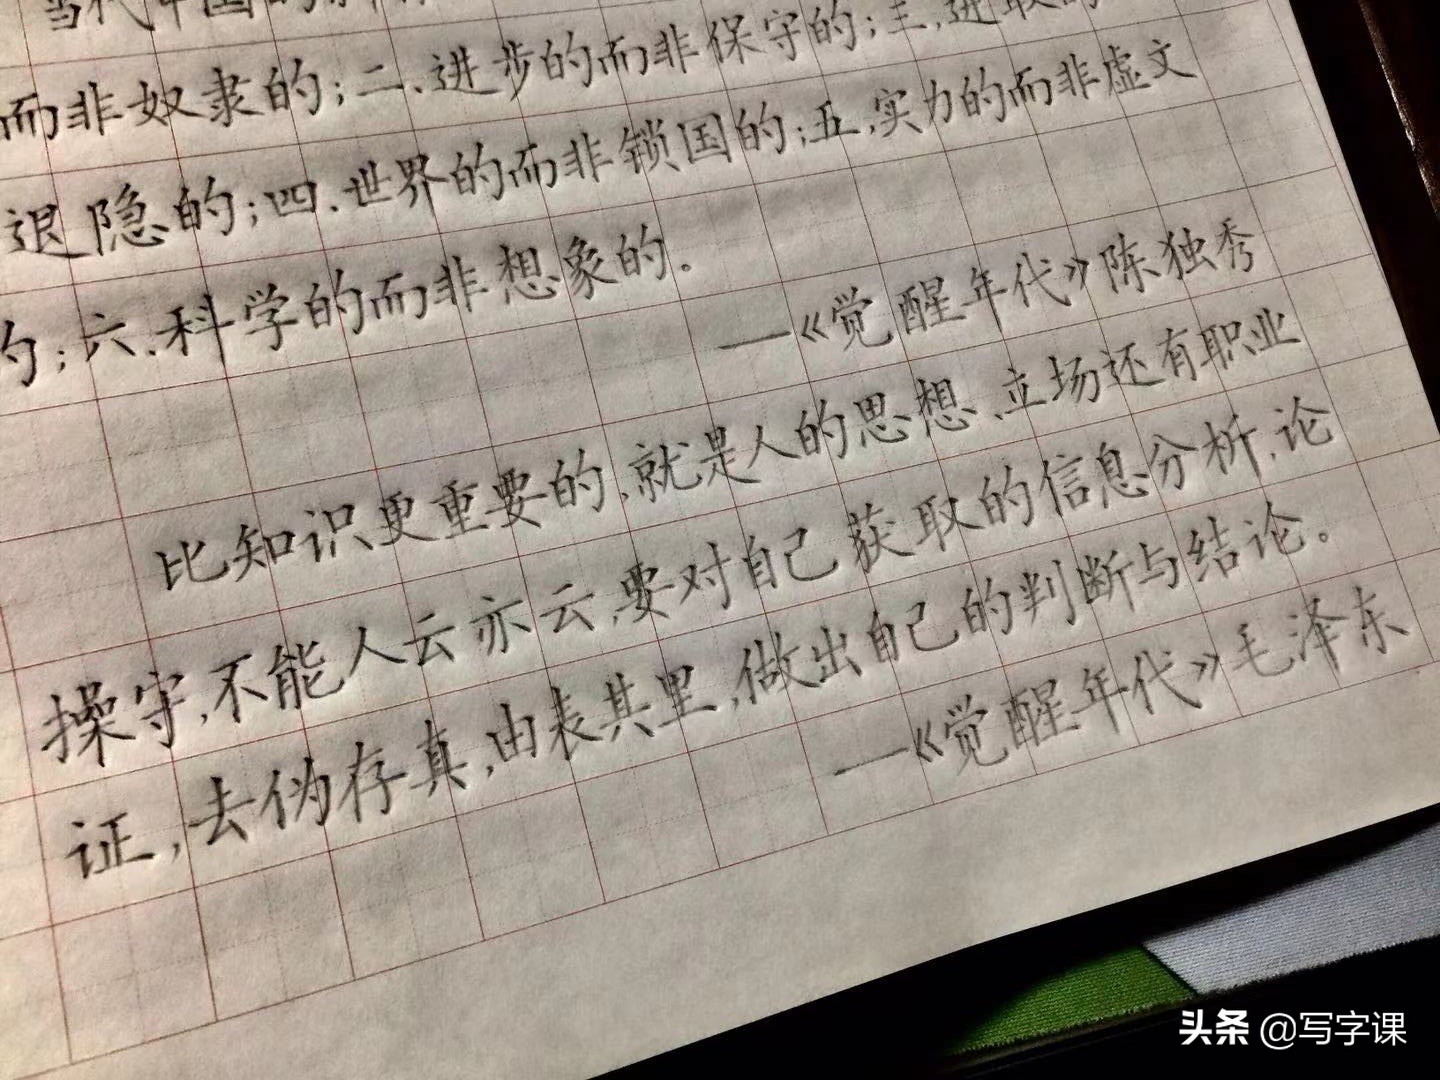 当代中国的
而非奴隶的；二、进步的而非保守的；三、进取的
退隐的；四、世界的而非锁国的；五、实力的而非虚文
的；六、科学的而非想象的。
——《觉醒年代》陈独秀
比知识更重要的，就是人的思想、立场还有职业
操守，不能人云亦云，要对自己获取的信息分析，论
证，去伪存真，由表其里，做出自己的判断与结论。
——《觉醒年代》毛泽东
头条 @写字课